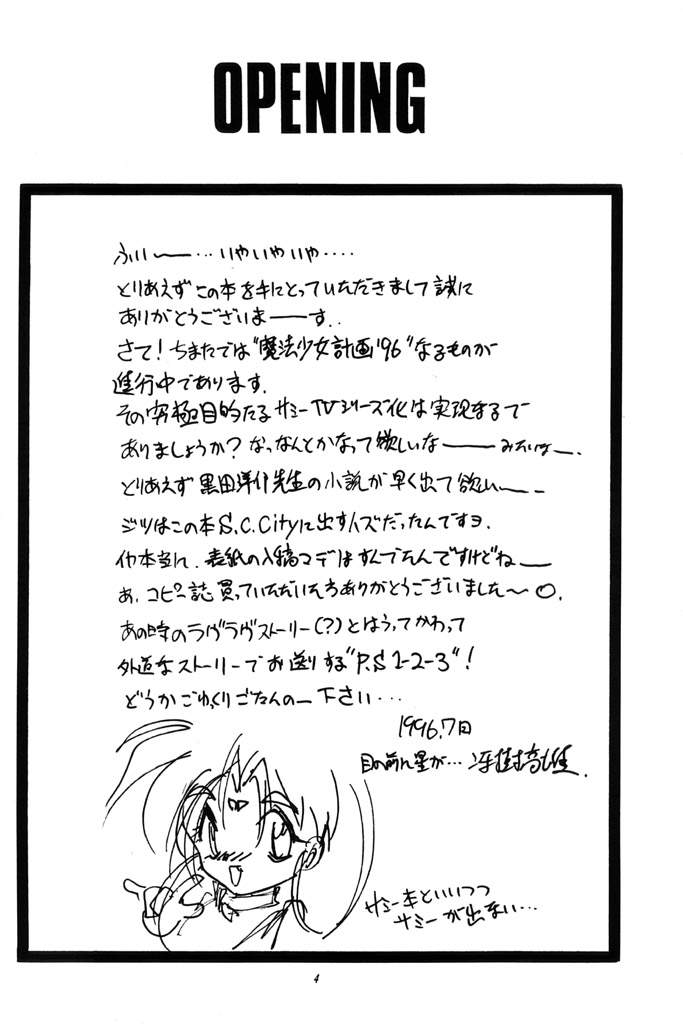 OPENING
ふぃ〜…いやいやいや‥‥
とりあえずこの本を手にとっていただきまして誠に
ありがとうございまーーす‥
さて!ちまたでは"魔法少女計画'96"なるものが
進行中であります.
その究極目的たるサミーTVシリーズ化は実現まるで
ありましょうか?なっなんとかなって欲しいなーーみたいなー.
とりあえず黒田洋介先生の小説が早く出て欲しい〜
ジツはこの本S.C.Cityに出すハズだったんですヨ.
イヤ本当に.表紙の入稿マデはすんでたんですけどねー
あ.コピー誌買っていただいた方ありがとうございました〜○.
あの時のラヴラヴストーリー(?)とはうってかわって
外道なストーリーでお送りする"P.S 1-2-3"!
どうかごゆっくりごたんのー下さい‥‥
1996.7月
目の前に星が…冴樹高雄.
サミー本といいつつ
サミーが出ない…
4